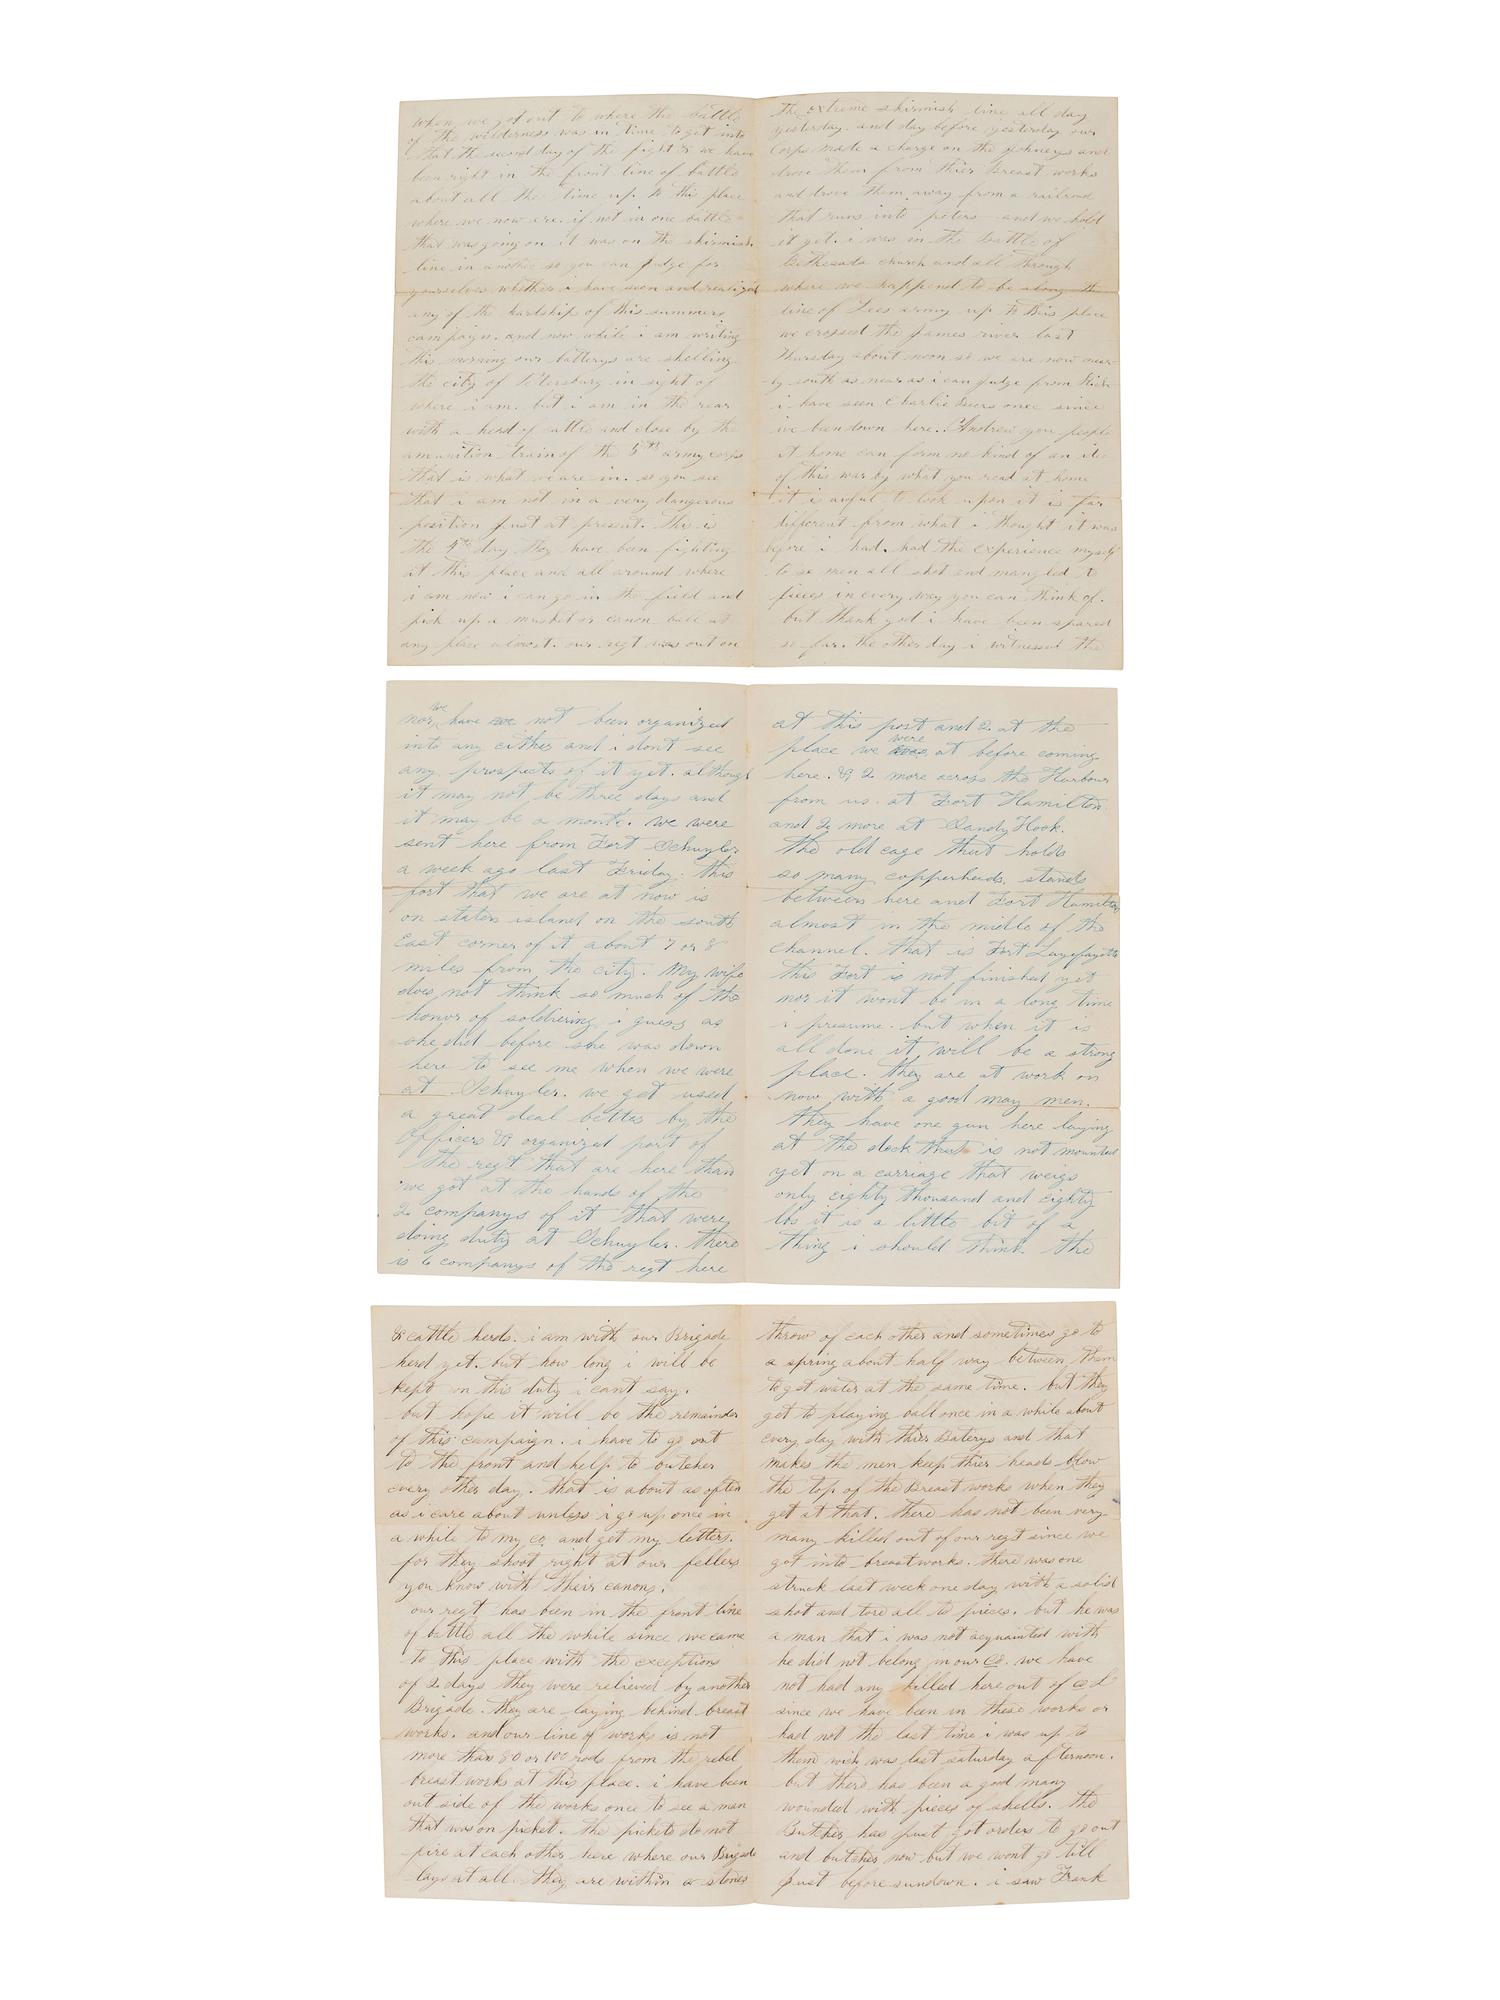 when we got out to where the battle
of the wilderness was in time to get into
that the second day of the fight & we have
been right in the front line of battle
about all the time up to this place
where we now are. if not in one battle
that was going on it was on the skirmish
line in another so you can judge for
yourselves whether i have seen and realized
any of the hardship of this summers
campaign. and now while i am writing
this morning our batterys are shelling
the city of Petersburg in sight of
where i am. but i am in the rear
with a herd of cattle and close by the
amunition train of the 5th army corps
that is what we are in. so you see
that i am not in a very dangerous
position just at present. this is
the 5th day they have been fighting
at this place and all around where
i am now i can go in the field and
pick up a musket or canon ball at
any place almost. our regt was out on
the extreme skirmish line all day
yesterday. and day before yesterday our
Corps made a charge on the johneys and
drove them from thier Breast works
and drove them away from a railroad
that runs into peters and we hold
it yet. i was in the battle of
Bethesada church and all through
where we happend to be along the
line of Lees army up to this place
we crossed the James river last
thursday about noon so we are now near
ly south as near as i can judge from Rich
i have seen Charlie Beers once since
ive been down here. Andrew you people
at home can form no kind of an idea
of this war by what you read at home
it is awful to look upon it is far
different from what i thought it was
before i had. had the experience myself
to se men all shot and mangled to
pieces in every way you can think of.
but thank god i have been spared
so far. the other day i witnessed the
nor we have not been organized
into any either and i dont see
any prospects of it yet. although
it may not be three days and
it may be a month. we were
sent here from Fort Schuyler
a week ago last Friday. this
fort that we are at now is
on staten island on the south
East corner of it about 7 or 8
miles from the city. My wife
does not think so much of the
honor of soldiering i guess as
she did before she was down
here to see me when we were
at Schuyler. we get used
a great deal better by the
Officers & organized part of
the regt that are here than
we got at the hands of the
2 companys of it that were
doing duty at Schuyler. there
is 6 companys of the regt here
at this post and 2 at the
place we were at before coming
here. & 2 more across the Harbour
from us at Fort Hamilton.
and 2 more at Sandy Hook.
the old cage that holds
so many copperheads. stands
between here and Fort Hamilton
almost in the midle of the
channel. that is Fort Layefayette
this Fort is not finished yet
nor it wont be in a long time
i presume. but when it is
all done it will be a strong
place. they are at work on
now with a good many men.
they have one gun here laying
at the dock that is not mounted
yet on a carriage that weigs
only eighty thousand and eighty
lbs it is a little bit of a
thing i should think. the
& cattle herds. i am with our Brigade
herd yet. but how long i will be
kept on this duty i cant say.
but hope it will be the remainder
of this campaign. i have to go out
to the front and help to butcher
every other day. that is about as often
as i care about unless i go up once in
a while to my co. and get my letters.
for they shoot right at our fellers
you know with their canons.
our regt has been in the front line
of battle all the while since we came
to this place with the exceptions
of 2 days they were relieved by another
Brigade. they are laying behind breast
works. and our line of works is not
more than 80 or 100 rods from the rebel
breast works at this place. i have been
out side of the works once to see a man
that was on picket. the pickets do not
fire at each other here where our Brigade
lays at all. they are within a stones
throw of each other and sometimes go to
a spring about half way between them
to get water at the same time. but they
get to playing ball once in a while about
every day with thier Baterys and that
makes the men keep thier heads blow
the top of the Breast works when they
get at that. there has not been very
many killed out of our regt since we
got into breastworks. there was one
struck last week one day with a solid
shot and tore all to pieces. but he was
a man that i was not acquainted with
he did not belong in our Co. we have
not had any killed here out of co L
since we have been in these works or
had not the last time i was up to
them wich was last saturday afternoon.
but there has been a good many
wounded with pieces of shells. the
Butcher has just got orders to go out
and butcher now but we wont go till
just before sundown. i saw Frank